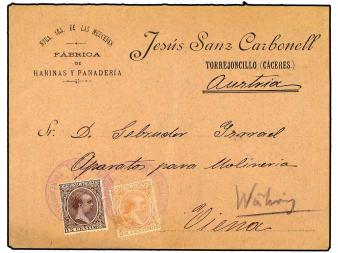 NTRA. SRA. DE LAS MERCEDES
FÁBRICA
DE
HARINAS Y PANADERÍA
Jesús Sanz Carbonell
TORREJONCILLO (CÁCERES.)
Austria
Sr. D. Gebruder Israel
Aparatos para Molineria
Viena